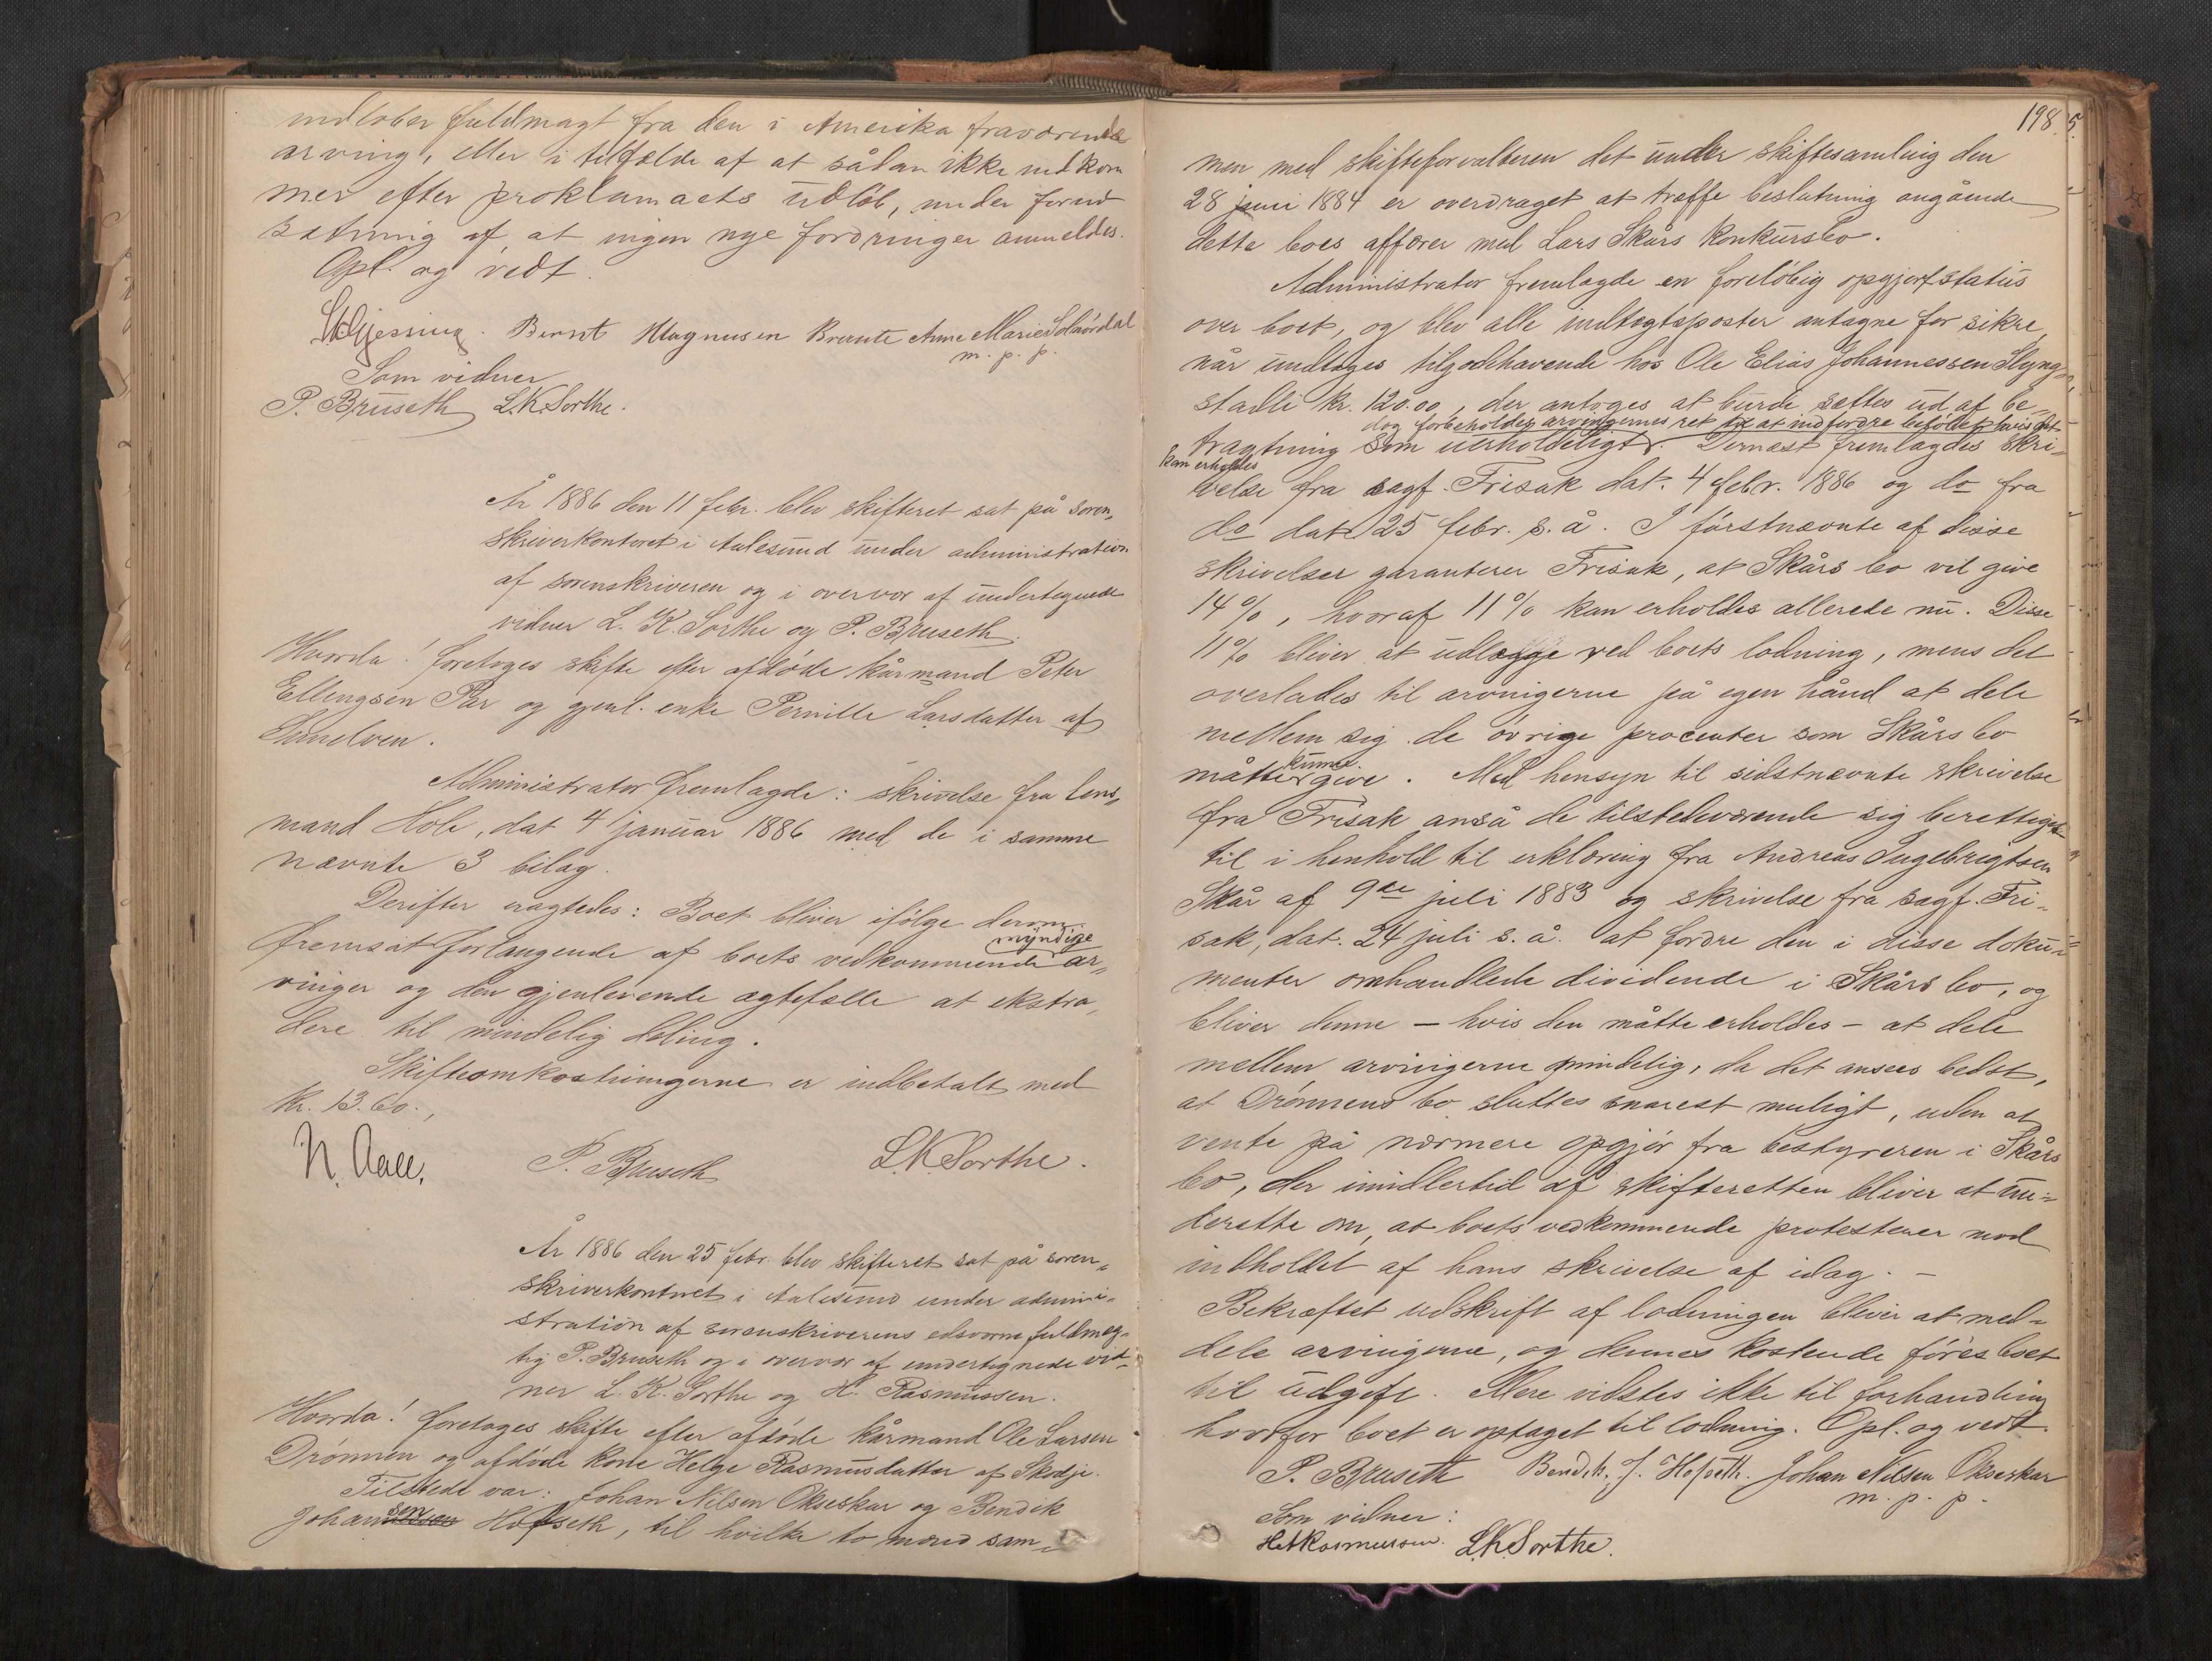 indløber fuldmagt fra den i Amerika fraværende
arving, eller i tilfælde af at sådan ikke indkom
mer efter proklamaets udløb, under forud
sætning af, at ingen nye fordringer anmeldes.
Opl. og vedt.
Bernt Magnusen Brante Anne Marie Solnørdal
m. p. p.
Som vidner
P. Bruseth L.K. Sorthe.
År 1886 den 11 febr. blev skifteret sat på soren„
skriverkontoret i Aalesund under administration
af sorenskriveren og i overvær af undertegnede
vidner L. K. Sorthe og P. Bruseth.
Hvorda! foretoges skifte efter afdøde kårmand Peter
Ellingsen Rør og gjenl. enke Pernille Larsdatter af
Sunelven.
Administrator fremlagde: skrivelse fra lens„
mand Hole, dat 4 januar 1886 med de i samme
nævnte 3 bilag.
Derifter eragtedes: Boet bliver ifølge derom
fremsat forlangende af boets vedkommende myndige ar„
vinger og den gjenlevende ægtefælle at ekstra„
dere til mindelig deling.
Skifteomkostningerne er indbetalt med
kr. 13.60.,
N. Aall. P. Bruseth L.K. Sorthe.
År 1886 den 25 febr. blev skifteret sat på soren„
skriverkontoret i Aalesund under admini„
stration af sorenskriverens edsvorne fuldmæg„
tig P. Bruseth og i overvær af undertegnede vid„
ner L. K. Sorthe og H. Rasmussen.
Hvorda! foretoges skifte efter afdøde kårmand Ole Larsen
Drønnen og afdøde kone Helge Rasmusdatter af Skodje.
Tilstede var: Johan Nilsen Okseskar og Bendik
Johansen Hofseth, til hvilke to mænd sam„
198
men med skifteforvalteren det under skiftesamling den
28 juni 1884 er overdraget at træffe beslutning angående
dette boes affærer med Lars Skårs konkursbo.
Administrator fremlagde en foreløbig opgjørsstatus
over boet, og blev alle indtægtsposter antagne for sikre,
når undtages tilgodehavende hos Ole Elias Johannessen Slyng„
stadli kr. 120.00, der antoges at burde sættes ud af be„
dog forbeholdes arvingernes ret til at indfordre beløbet hvis det
tragtning som uerholdeligt. Dernæst fremlagdes skri„
kan erholdes
velse fra sagf. Frisak dat. 4 febr. 1886 og do fra
do dat 25 febr. s. å. I førstnævnte af disse
skrivelser garanterer Frisak, at Skårs bo vil give
14 %, hvoraf 11 % kan erholdes allerede nu. Disse
11 % bliver at udlægge ved boets lodning, mens det
overlades til arvingerne på egen hånd at dele
mellem sig de øvrige procenter som Skårs bo
måtte kunne give. Med hensyn til sidstnævnte skrivelse
fra Frisak anså de tilstedeværende sig berettiget
til i henhold til erklæring fra Andreas Ingebrigtsen
Skår af 9de juli 1883 og skrivelse fra sagf. Fri„
sak, dat. 24 juli s. å. at fordre den i disse doku„
menter omhandlede dividende i Skårs bo, og
bliver denne – hvis den måtte erholdes – at dele
mellem arvingerne mindelig, da det ansees bedst,
at Drønnens bo sluttes snarest muligt, uden at
vente på nærmere opgjør fra bestyreren i Skårs
bo, der imidlertid af skifteretten bliver at un„
derette om, at boets vedkommende protesterer mod
indholdet af hans skrivelse af idag. –
Bekræftet udskrift af lodningen bliver at med„
dele arvingerne, og dennes kostende føres boet
til udgift. Mere vidstes ikke til forhandling
hvorfor boet er optaget til lodning. Opl. og vedt.
P. Bruseth Bendik J. Hofseth. Johan Nilsen Okseskar
m. p. p.
Som vidner:
H. Rasmussen. L.K. Sorthe.